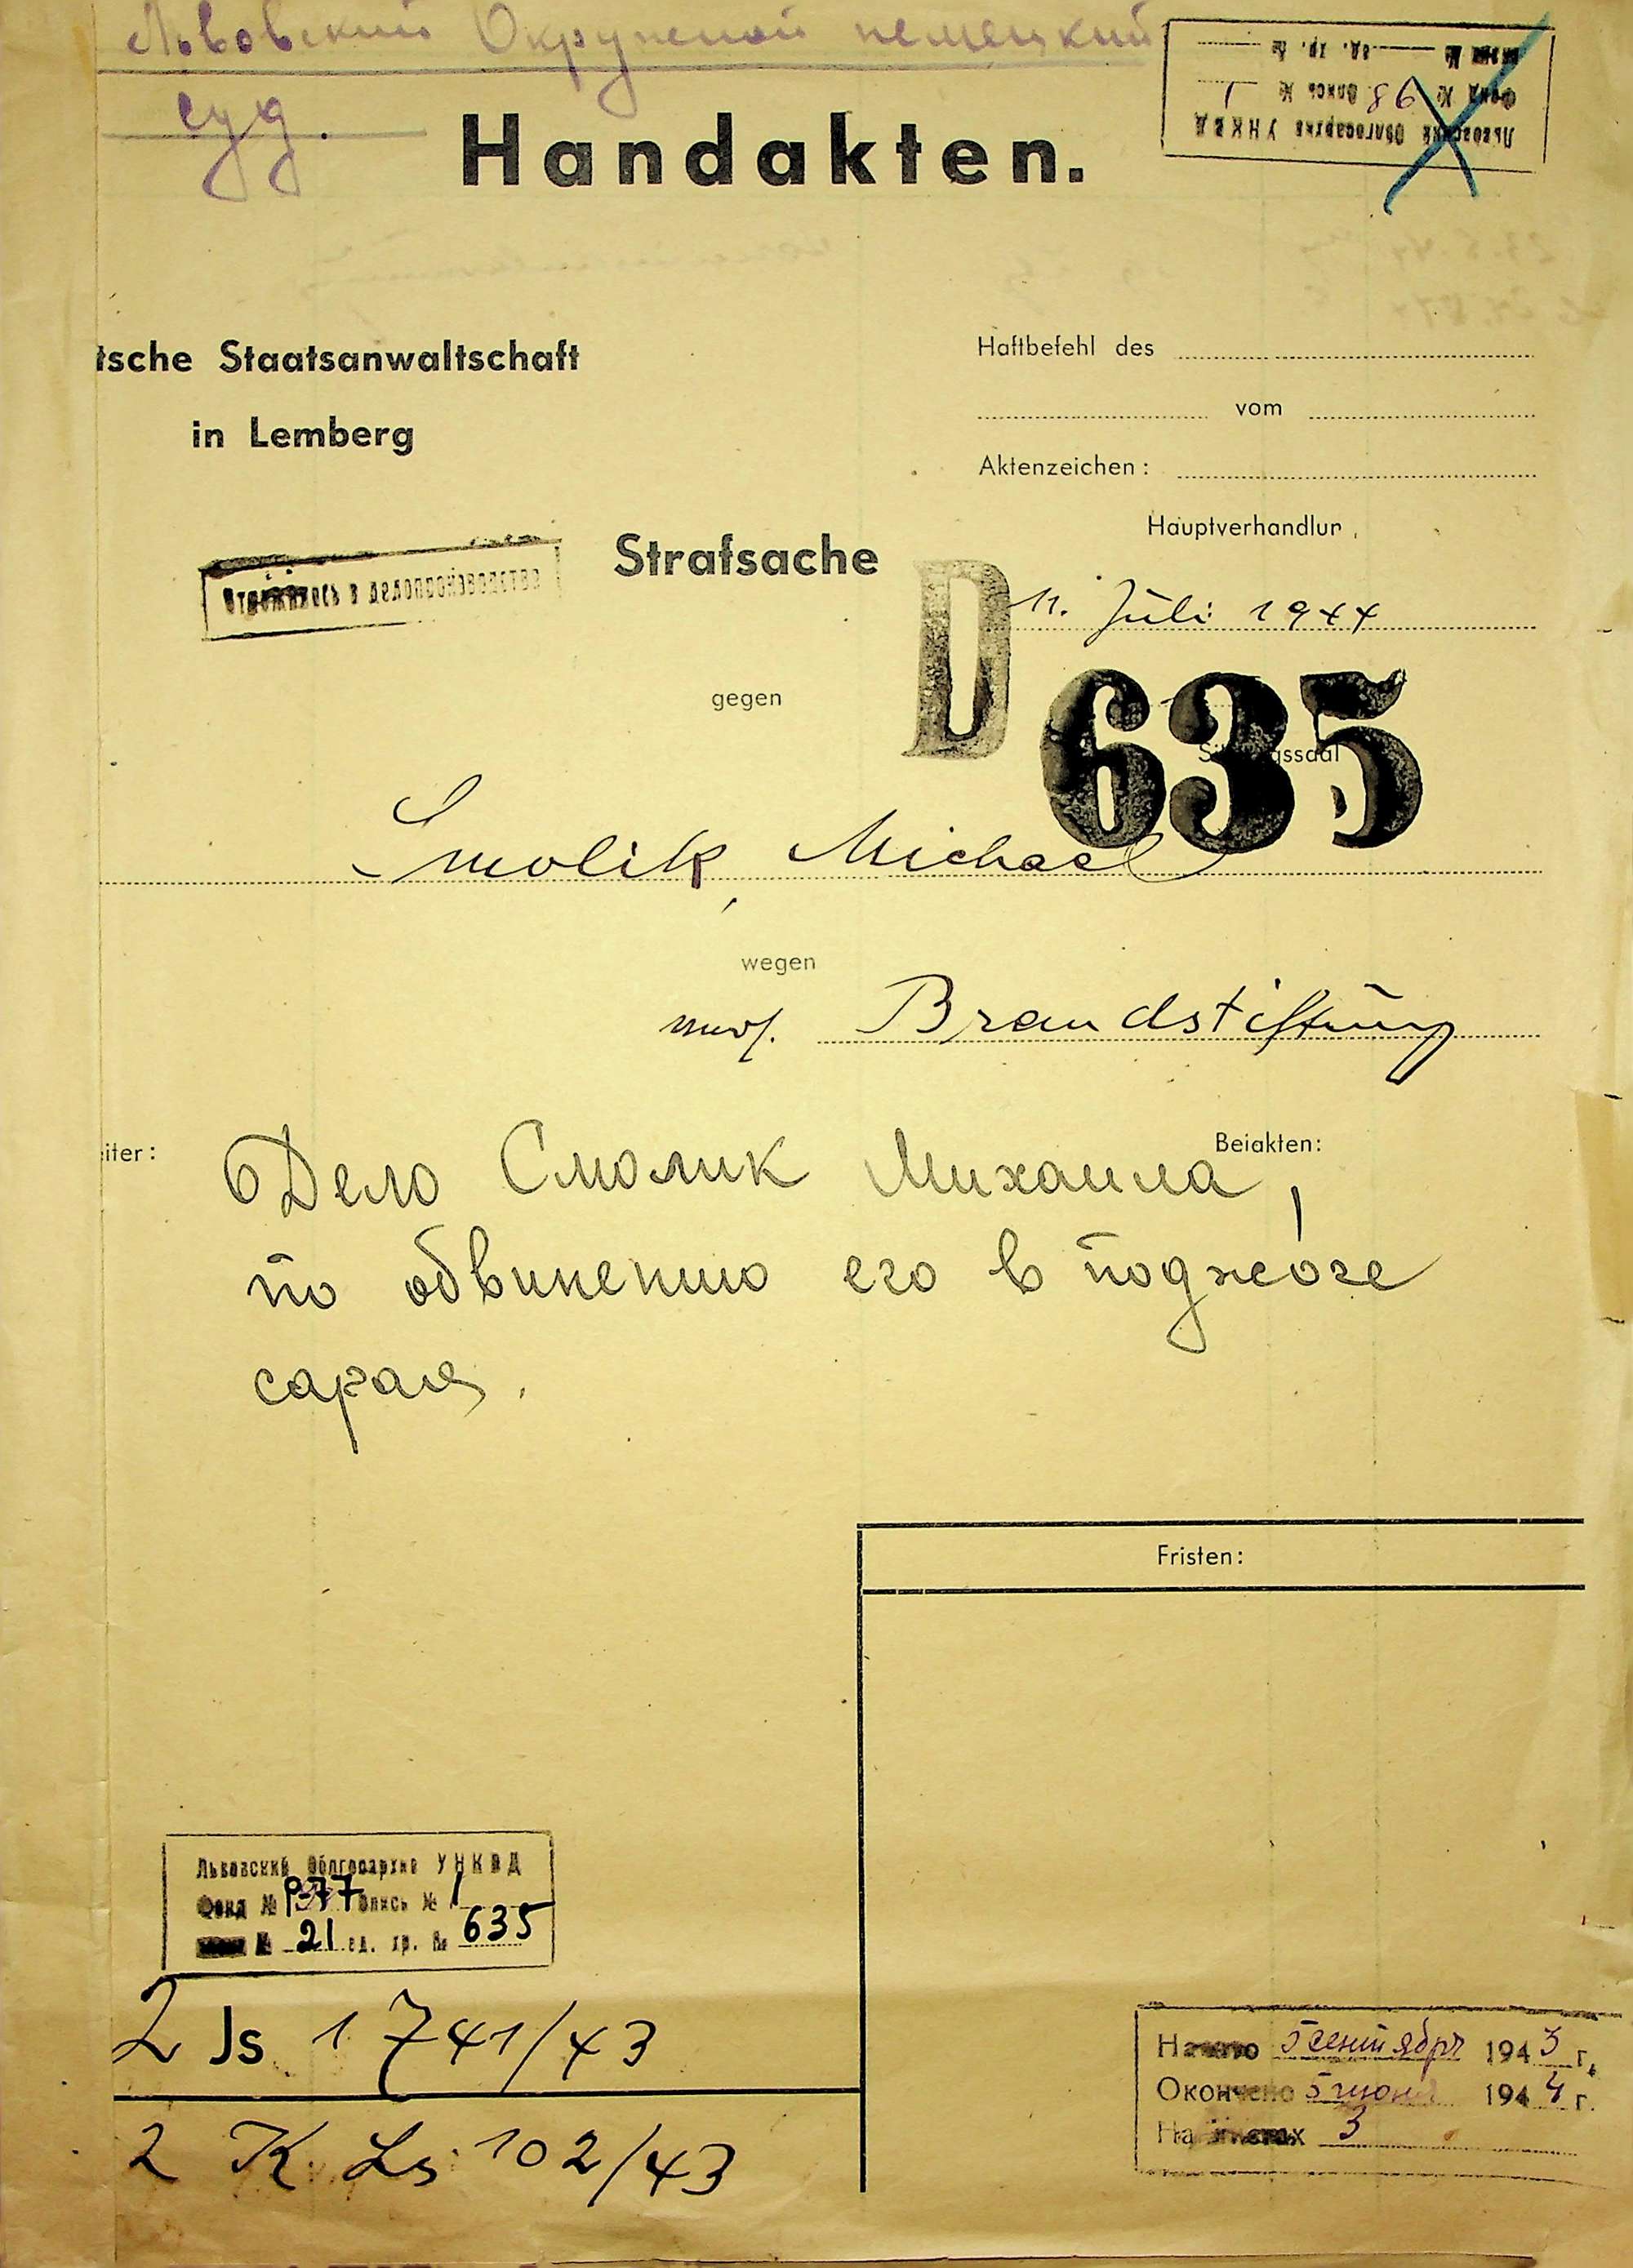 Львовский Окружной немецкий
суд.
Львовский Облгосархив УНКВД
Фонд № 98 Опись № 1
№ ед. хр. №
Handakten.
tsche Staatsanwaltschaft
in Lemberg
Haftbefehl des
vom
Aktenzeichen:
Hauptverhandlun
Отразилось в делопроизводстве
Strafsache
11. Juli 1944
gegen
D 635
Sitzungssaal
Smolik, Michael
wegen
Brandstiftung
iter:
Beiakten:
Дело Смолик Михаила,
по обвинению его в поджоге
сарая.
Fristen:
Львовский Облгосархив УНКВД
Фонд № Р-77 Опись № 1
№ 21 ед. хр. № 635
2 Js 1741/43
2 K Ls 102/43
Начато 5 сентября 1943 г.
Окончено 5 июня 1944 г.
На листах 3